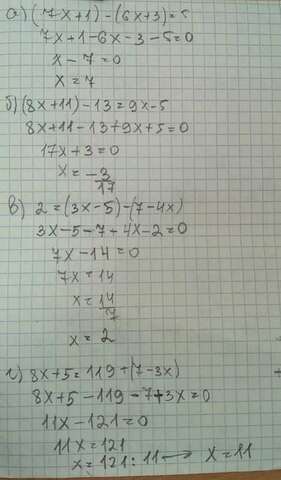 а) (7x+1)-(6x+3)=5
7x+1-6x-3-5=0
x-7=0
x=7
б) (8x+11)-13=9x-5
8x+11-13+9x+5=0
17x+3=0
x=-3/17
в) 2=(3x-5)-(7-4x)
3x-5-7+4x-2=0
7x-14=0
7x=14
x=14/7
x=2
г) 8x+5=119+(7-3x)
8x+5-119-7+3x=0
11x-121=0
11x=121
x=121:11 → x=11